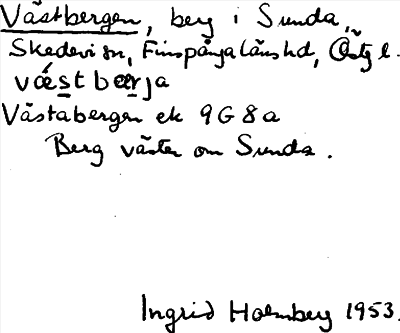 Västbergen, berg i Sunda,
Skedevi sn, Finspångalänshd, Östg l.
væ̂stbærja
Västabergen ek 9G8a
Berg väster om Sunda.
Ingrid Holmberg 1953.